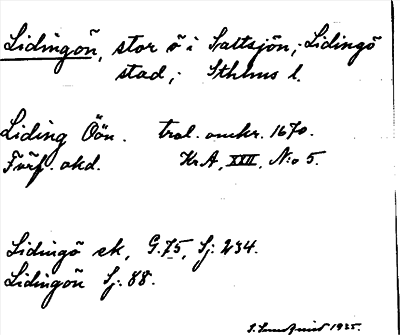 Lidingön, stor ö i Saltsjön, Lidingö
stad, Sthlms l.
Liding Öön. trol. omkr. 1670.
Förf. okd. KrA, XXII, N:o 5.
Lidingö sk, G.75, Sj: 234.
Lidingön Sj: 88.
1925.